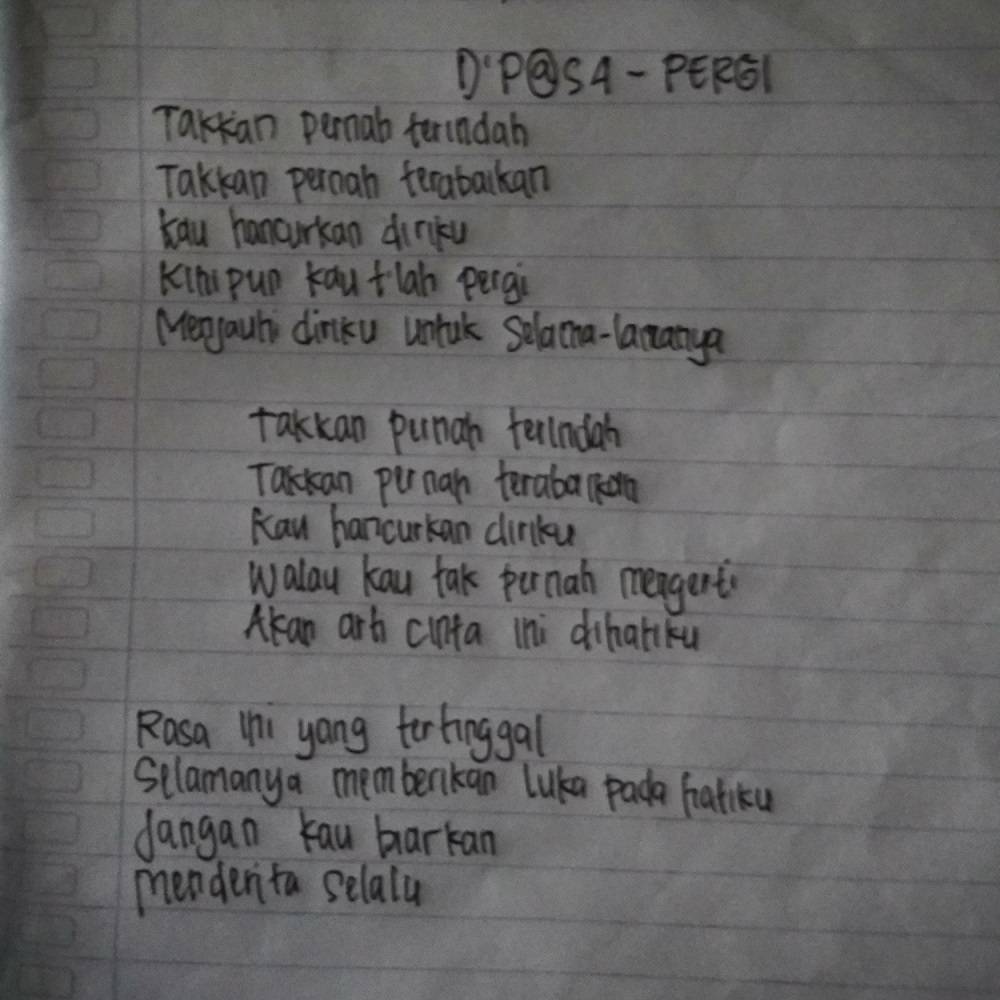 D'P@S4 - PERGI
Takkan pernah terindah
Takkan pernah terabaikan
Kau hancurkan diriku
Kini pun kau t'lah pergi
Menjauhi diriku untuk Selama-lamanya
Takkan pernah terindah
Takkan pernah terabaikan
Kau hancurkan diriku
Walau kau tak pernah mengerti
Akan arti cinta ini dihatiku
Rasa ini yang tertinggal
Selamanya memberikan luka pada hatiku
Jangan kau biarkan
Menderita selalu